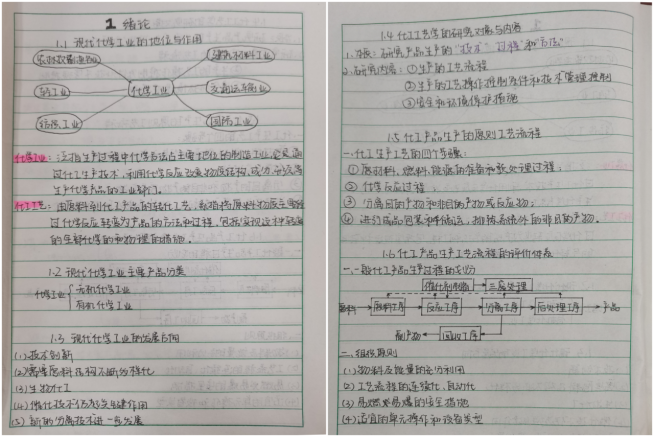 1 绪论
1.1 现代化学工业的地位与作用
农林牧副渔业
建筑材料工业
轻工业
化学工业
交通运输业
纺织工业
国防工业
化学工业：泛指生产过程中化学方法占主要地位的制造工业，它是通
过化工生产技术，利用化学反应改变物质结构、成分、形态等
生产化学产品的工业部门。
化工工艺：由原料到化工产品的转化工艺，系指将原料物质主要经
过化学反应转变为产品的方法和过程，包括实现这种转变
的全部化学的和物理的措施。
1.2 现代化学工业主要产品分类
化学工业
无机化学工业
有机化学工业
1.3 现代化学工业的发展方向
(1)技术创新
(2)原料结构不断多样化
(3)生物化工
(4)催化技术仍起关键作用
(5)新的分离技术进一步发展
1.4 化工工艺学的研究对象与内容
1.对象：研究产品生产的“技术”“过程”和“方法”
2.研究内容：①生产的工艺流程
②生产的工艺操作控制条件和技术管理控制
③安全和环境保护措施
1.5 化工产品生产的原则工艺流程
一、化工生产工艺的四个步骤：
① 原材料、燃料、能源的准备和预处理过程；
② 化学反应过程；
③ 分离目的产物和非目的产物或反应物；
④ 进行成品包装和储运，排放系统外的非目的产物。
1.6 化工产品生产工艺流程的评价体系
一、一般化工产品生产过程的划分
催化剂制备
三废处理
原料
原料工序
反应工序
分离工序
后处理工序
产品
副产物
回收工序
二、组织原则
(1)物料及能量的充分利用
(2)工艺流程的连续化、自动化
(3)易燃易爆的安全措施
(4)适宜的单元操作和设备类型